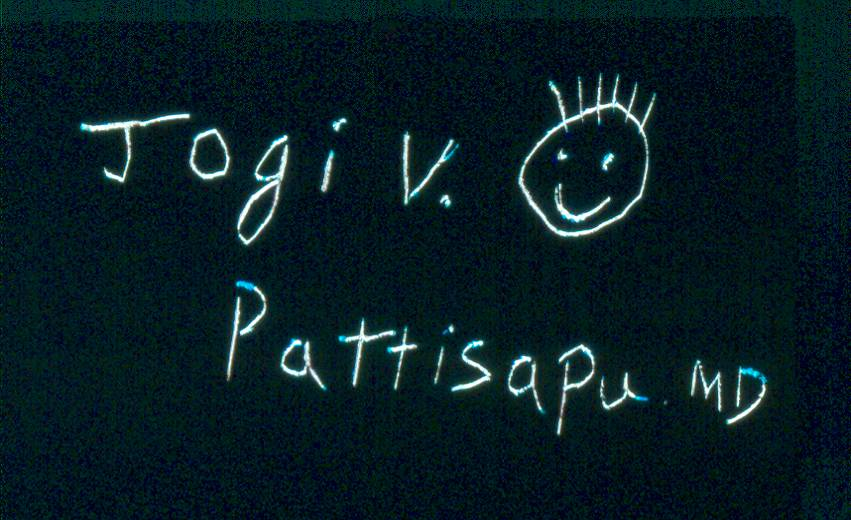 Jogi V.
Pattisapu. MD